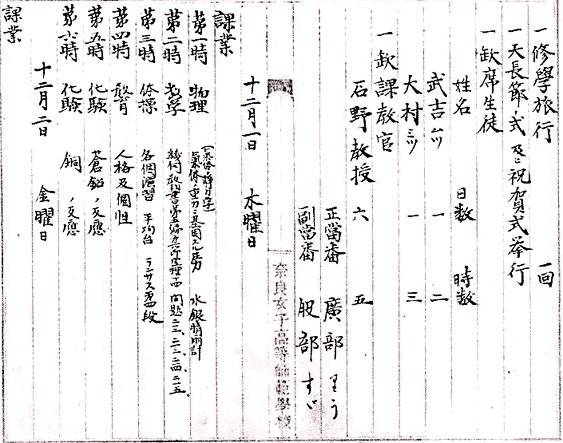 一修學旅行 一回
一天長節ノ式及ビ祝賀式挙行
一欽席生徒
姓名 日数 時数
武吉ムツ 一 二
大村ミツ 一 三
一欽課教官
石野教授 六 五
正當番 廣部りう
副當番 服部すゞ
奈良女子高等師範學校
十二月一日 木曜日
課業
第一時 物理 水銀晴雨計
第二時 数學
第三時 体操 各個演習 平均台
第四時 教育 人格及個性
第五時 化験 蒼鉛ノ反應
第六時 化験 銅ノ反應
十二月二日 金曜日
課業